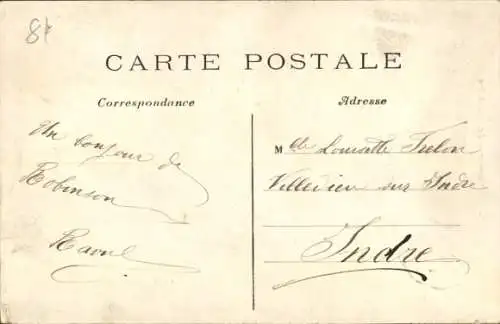 8f
CARTE POSTALE
Correspondance
Un bonjour de
Robinson
Raoul
Adresse
Mlle Louisette
Villedieu sur Indre
Indre